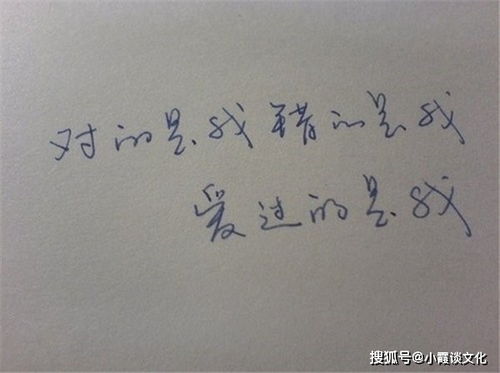 对的是我错的是我
爱过的是我
搜狐号@小霞谈文化